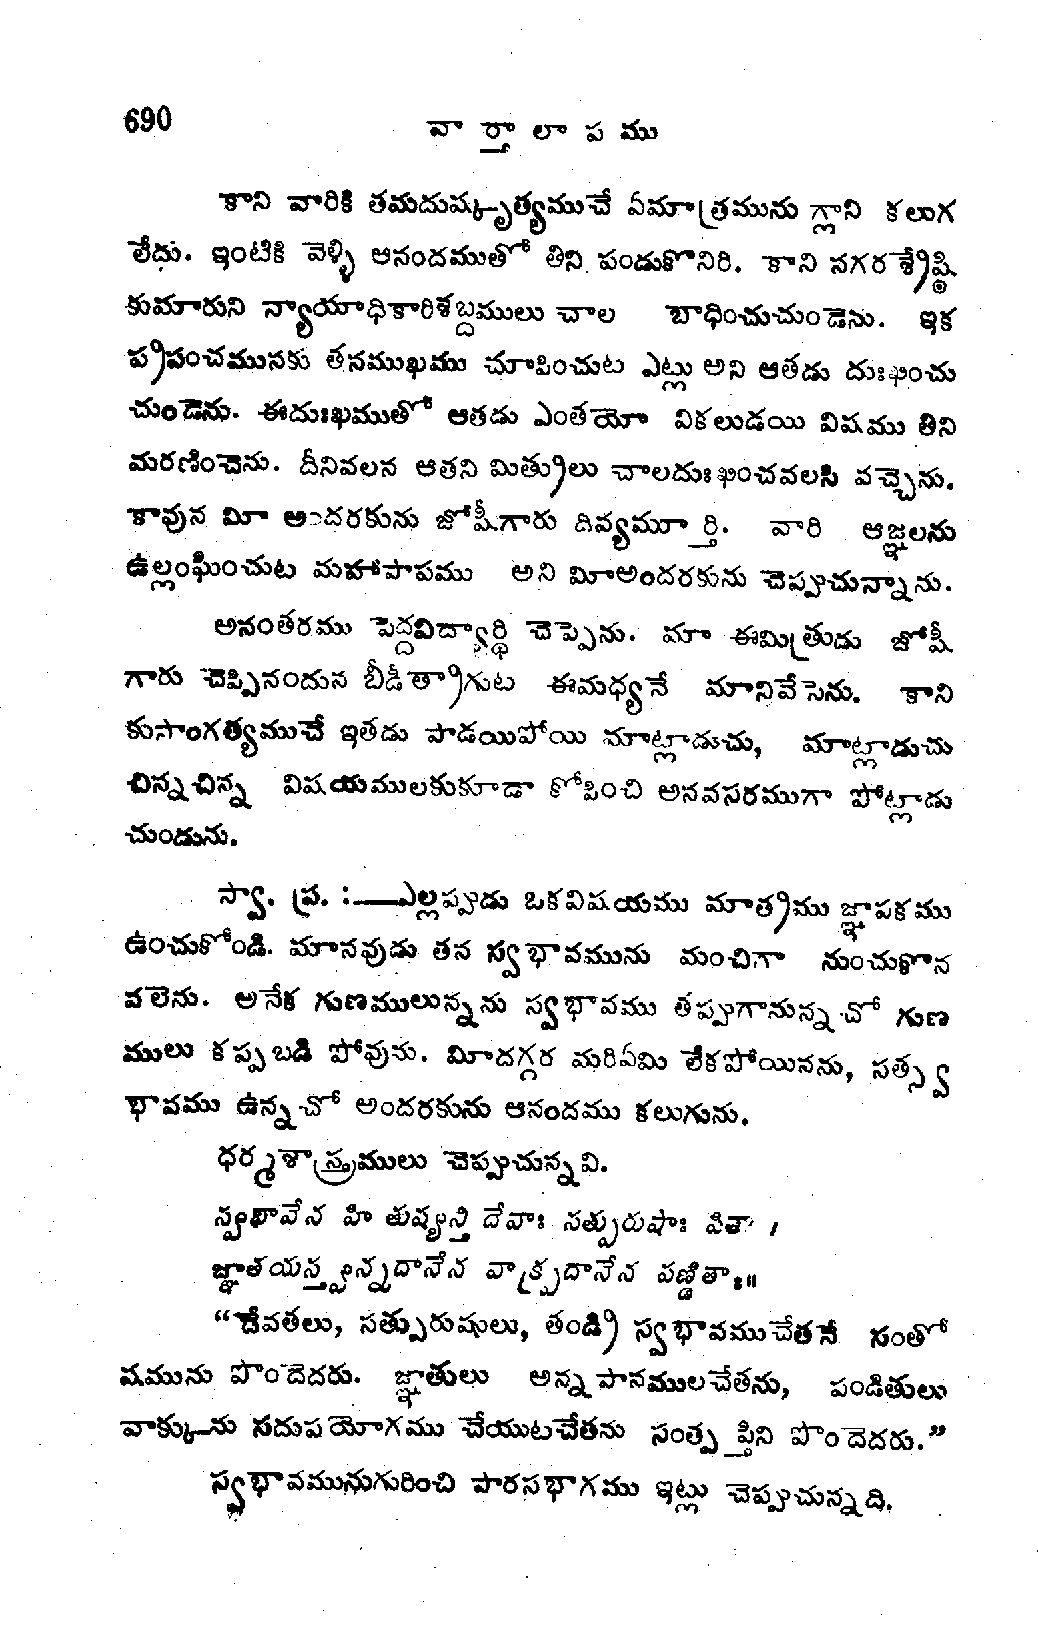 690
వార్తాలాపము
కాని వారికి తమదుష్కృత్యముచే ఏమాత్రమును గ్లాని కలుగ
లేదు. ఇంటికి వెళ్ళి ఆనందముతో తిని పండుకొనిరి. కాని నగరశ్రేష్ఠి
కుమారుని న్యాయాధికారిశబ్దములు చాల బాధించుచుండెను. ఇక
ప్రపంచమునకు తనముఖము చూపించుట ఎట్లు అని ఆతడు దుఃఖించు
చుండెను. ఈదుఃఖముతో ఆతడు ఎంతయో వికలుడయి విషము తిని
మరణించెను. దీనివలన ఆతని మిత్రులు చాలదుఃఖించవలసి వచ్చెను.
కావున మీ అందరకును జోషీగారు దివ్యమూర్తి. వారి ఆజ్ఞలను
ఉల్లంఘించుట మహాపాపము అని మీఅందరకును చెప్పుచున్నాను.
అనంతరము పెద్దవిద్యార్థి చెప్పెను. మా ఈమిత్రుడు జోషీ
గారు చెప్పినందున బీడీత్రాగుట ఈమధ్యనే మానివేసెను. కాని
కుసాంగత్యముచే ఇతడు పాడయిపోయి మాట్లాడుచు, మాట్లాడుచు
చిన్నచిన్న విషయములకుకూడా కోపించి అనవసరముగా పోట్లాడు
చుండును.
స్వా. ప్ర. :—ఎల్లప్పుడు ఒకవిషయము మాత్రము జ్ఞాపకము
ఉంచుకోండి. మానవుడు తన స్వభావమును మంచిగా నుంచుకొన
వలెను. అనేక గుణములున్నను స్వభావము తప్పుగానున్నచో గుణ
ములు కప్పబడి పోవును. మీదగ్గర మరిఏమి లేకపోయినను, సత్స్వ
భావము ఉన్నచో అందరకును ఆనందము కలుగును.
ధర్మశాస్త్రములు చెప్పుచున్నవి.
స్వభావేన హి తుష్యన్తి దేవాః సత్పురుషాః పితా ।
జ్ఞాతయస్త్వన్నదానేన వాక్ప్రదానేన పణ్డితాః॥
“దేవతలు, సత్పురుషులు, తండ్రి స్వభావముచేతనే సంతో
షమును పొందెదరు. జ్ఞాతులు అన్నపానములచేతను, పండితులు
వాక్కును సదుపయోగము చేయుటచేతను సంతృప్తిని పొందెదరు.”
స్వభావమునుగురించి పారసభాగము ఇట్లు చెప్పుచున్నది.